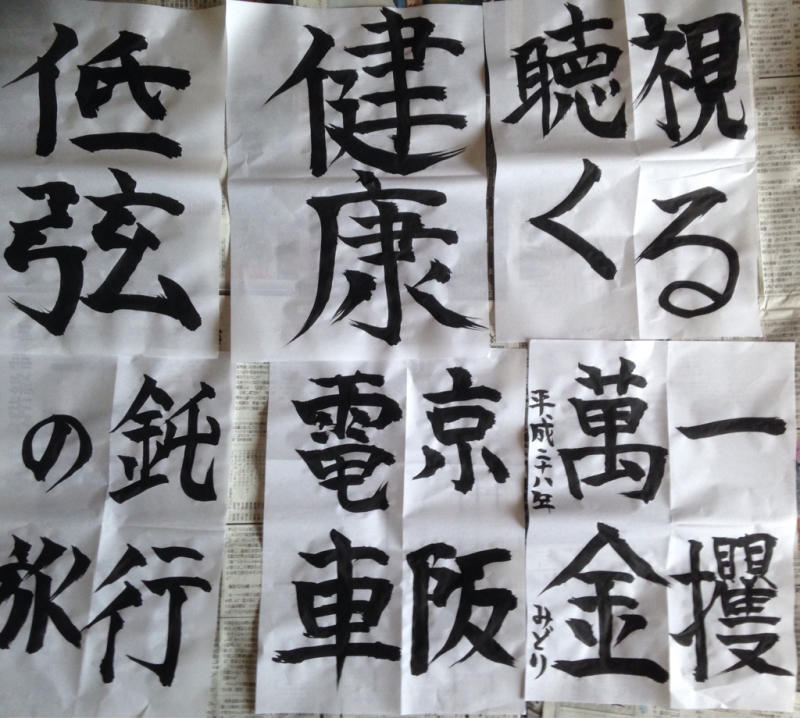 視る
聴く
健康
低弦
一攫
萬金
平成二十八年 みどり
京阪
電車
鈍行
の旅